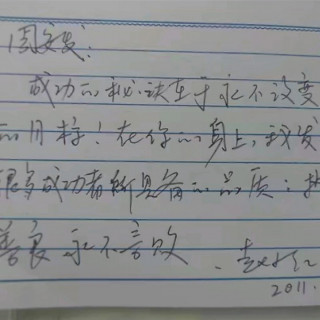 周文发:
成功的秘诀在于永不改变
的目标!在你的身上,我发
很多成功者所具备的品质:执
善良 永不言败
2011.